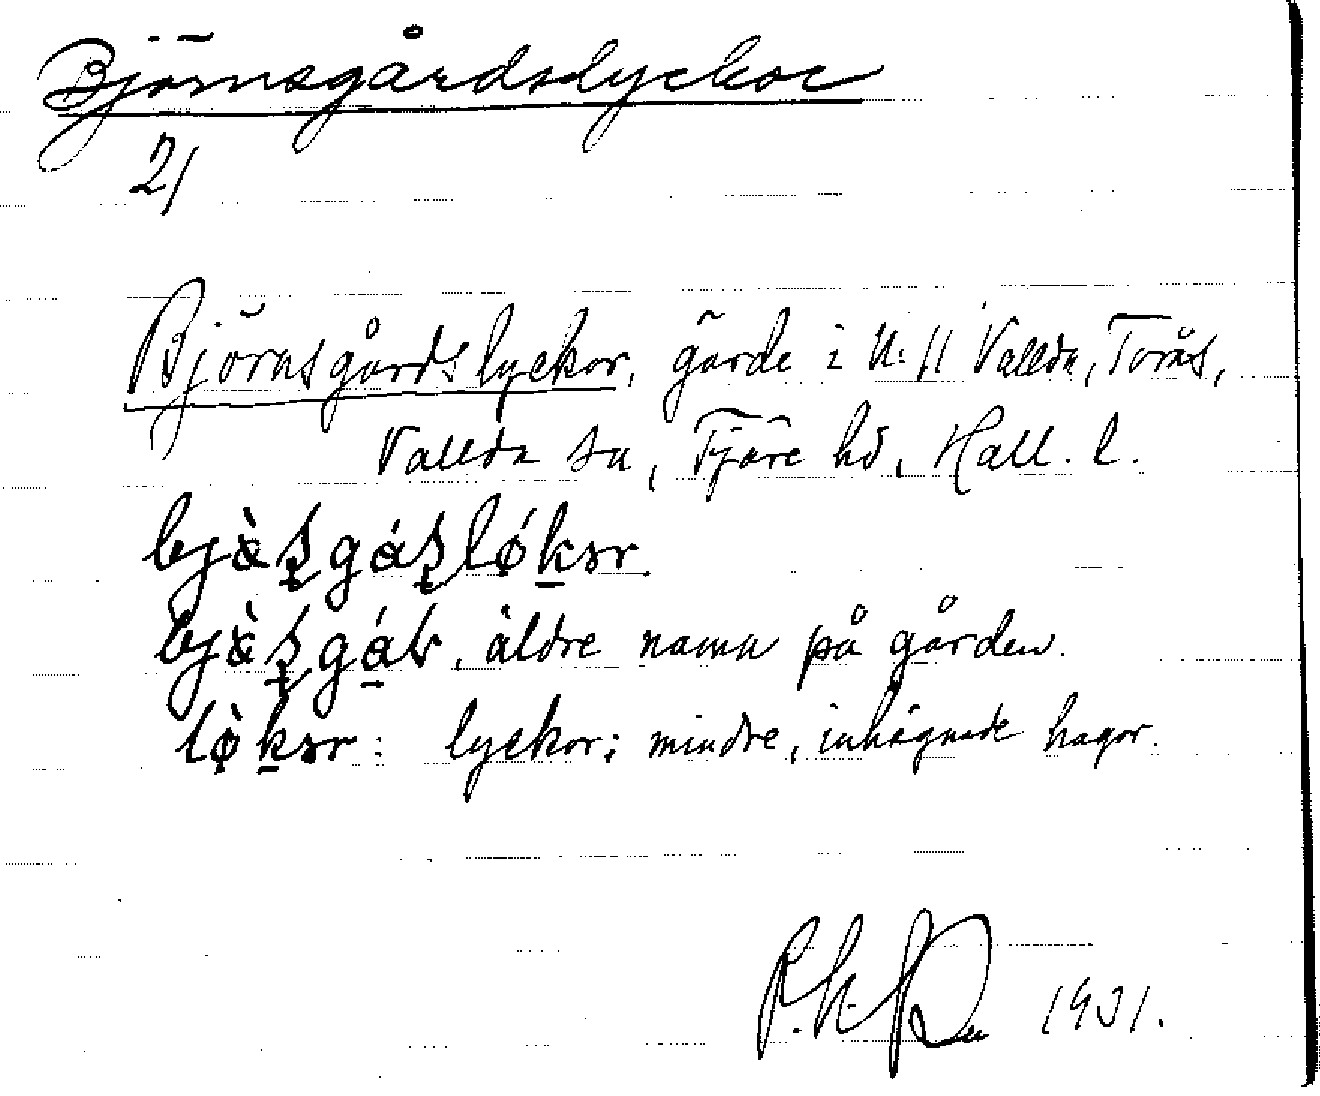 Björnsgårdslyckor
2/
Björnsgårdslyckor, gärde i N:11 Vallda, Torås,
Vallda sn, Fjäre hd, Hall. l.
äldre namn på gården.
lyckor; mindre, inhägnade hagor.
1931.